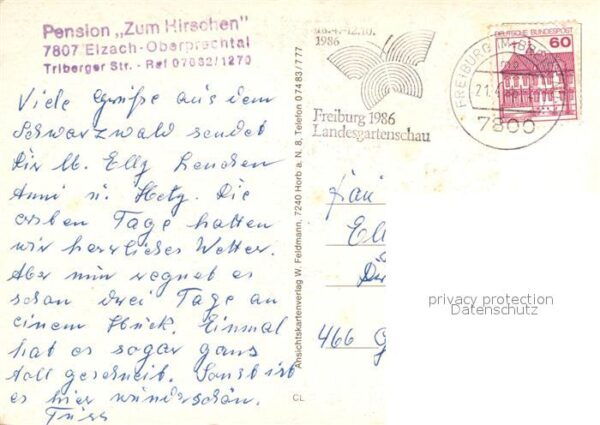 Pension „Zum Hirschen"
7807 Elzach-Oberprechtal
Triberger Str. - Ruf 07682/1270
Viele Grüße aus dem
Schwarzwald sendet
Dir lb. Elly
Anni u. Die
ersten Tage hatten
wir herrliches Wetter.
Aber nun regnet es
schon drei Tage an
einem Stück. Einmal
hat es sogar ganz
toll geschneit. Sonst ist
es hier wunderschön.
Tüss
Ansichtskartenverlag W. Feldmann, 7240 Horb a. N. 8, Telefon 07483/777
CL
1986
Freiburg 1986
Landesgartenschau
FREIBURG IM BR
21.4.86
7800
DEUTSCHE BUNDESPOST
60
Frau
El
466 G
privacy protection
Datenschutz